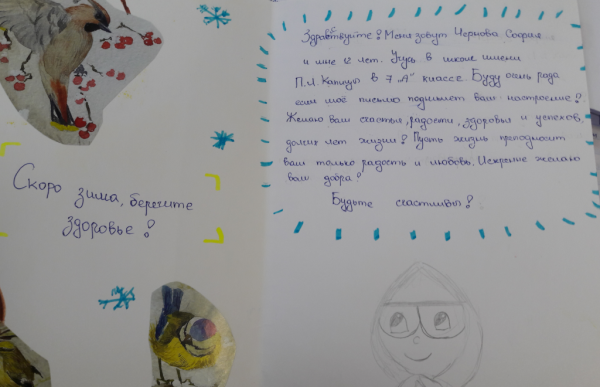 Скоро зима, берегите
здоровье!
Здравствуйте! Меня зовут Чернова София
и мне 12 лет. Учусь в школе имени
П.Л. Капицы в 7 "А" классе. Буду очень рада
если моё письмо поднимет вам настроение!
Желаю вам счастья, радости, здоровья и успехов,
долгих лет жизни! Пусть жизнь преподносит
вам только радость и любовь. Искренне желаю
вам добра!
Будьте счастливы!